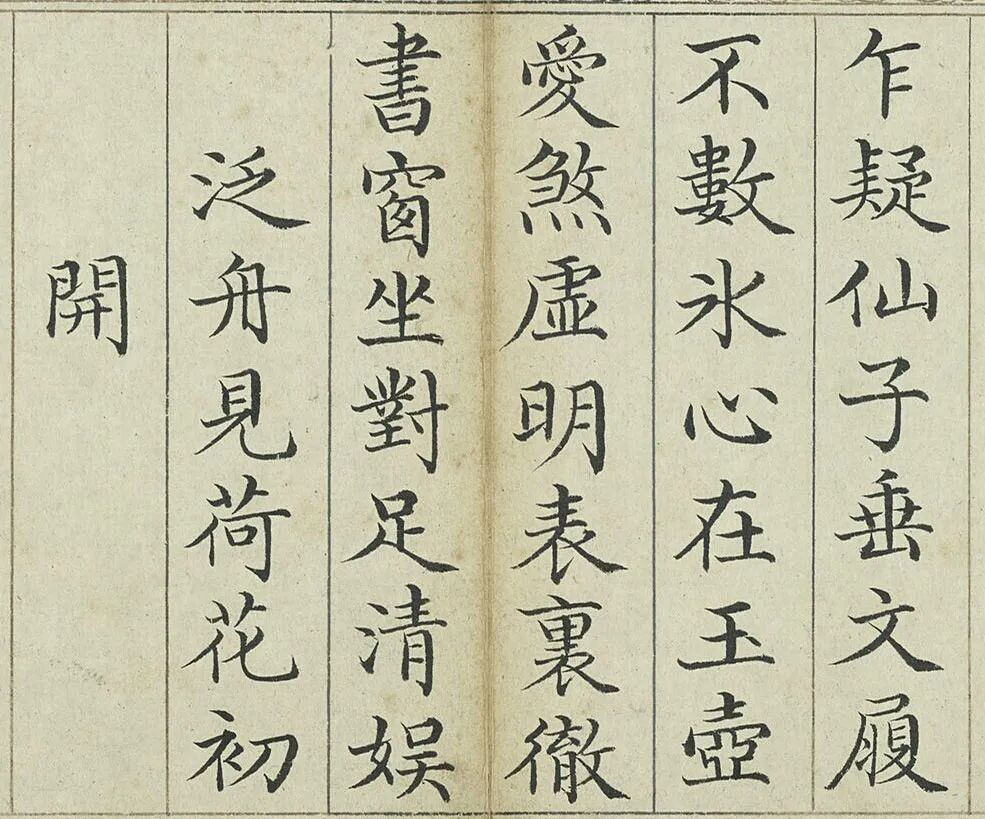 乍疑仙子垂文履
不數氷心在玉壺
愛煞虛明表裏徹
書窗坐對足清娛
泛舟見荷花初
開